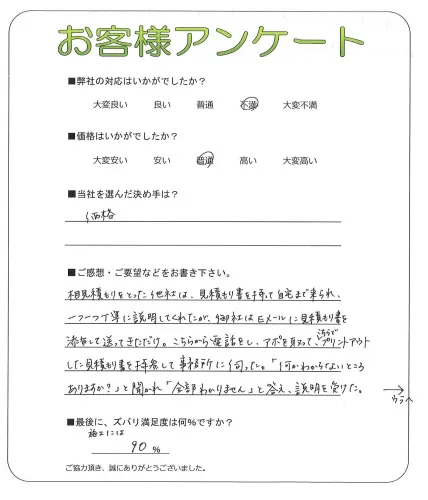 お客様アンケート
■弊社の対応はいかがでしたか？
大変良い 良い 普通 不満 大変不満
■価格はいかがでしたか？
大変安い 安い 普通 高い 大変高い
■当社を選んだ決め手は？
価格
■ご感想・ご要望などをお書き下さい。
相見積もりをとった他社は、見積もり書を持って自宅まで来られ、
一つ一つ丁寧に説明してくれたが、御社はEメールに見積もり書を
添付して送ってきただけ。こちらから電話をし、アポを取って、こちらでプリントアウト
した見積もり書を持参して事務所に伺った。「何かわからないところ
ありますか？」と聞かれ「全部わかりません」と答え、説明を受けた。
→ウラへ
■最後に、ズバリ満足度は何％ですか？
施工には
90％
ご協力頂き、誠にありがとうございました。